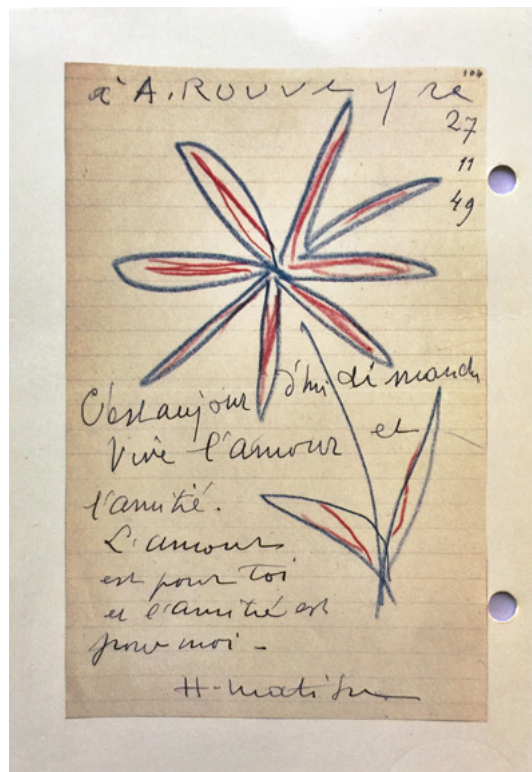 104
à A. ROUVEYRE
27
11
49
C'est aujourd'hui dimanche
Vive l'amour et
l'amitié.
L'amour
est pour toi
et l'amitié est
pour moi -
H-matisse